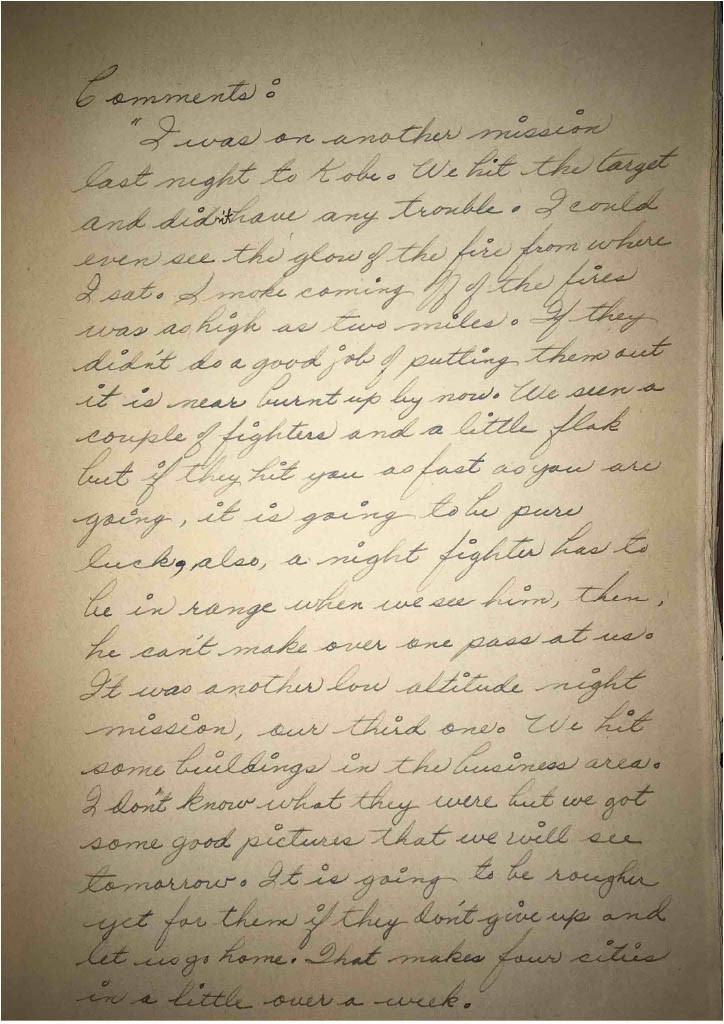 Comments:
"I was on another mission
last night to Kobe. We hit the target
and didn't have any trouble. I could
even see the glow of the fire from where
I sat. Smoke coming off of the fires
was as high as two miles. If they
didn't do a good job of putting them out
it is near burnt up by now. We seen a
couple of fighters and a little flak
but if they hit you as fast as you are
going, it is going to be pure
luck, also, a night fighter has to
be in range when we see him, then,
he can't make over one pass at us.
It was another low altitude night
mission, our third one. We hit
some buildings in the business area.
I don't know what they were but we got
some good pictures that we will see
tomorrow. It is going to be rougher
yet for them if they don't give up and
let us go home. That makes four cities
in a little over a week.